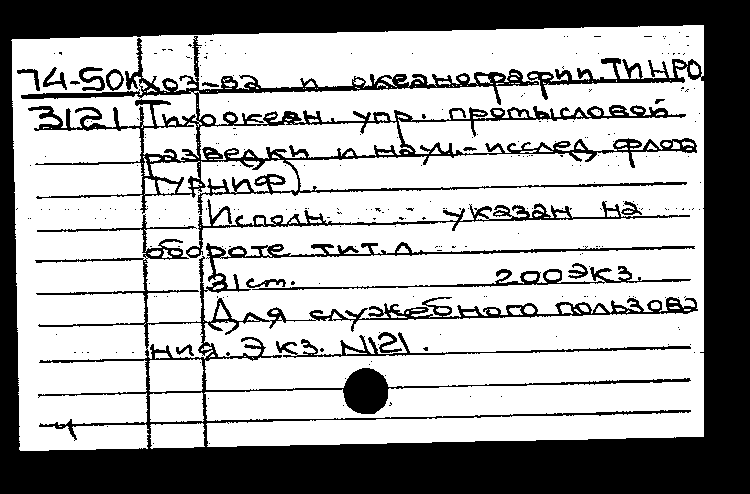 74-50к хоз-ва и океанографии. ТИНРО.
3121 Тихоокеан. упр. промысловой
разведки и науч.-исслед флота
ТУРНИФ).
Исполн. указан на
обороте тит. л.
31 ст. 200 экз.
Для служебного пользова
ния. Экз. N121.
ч